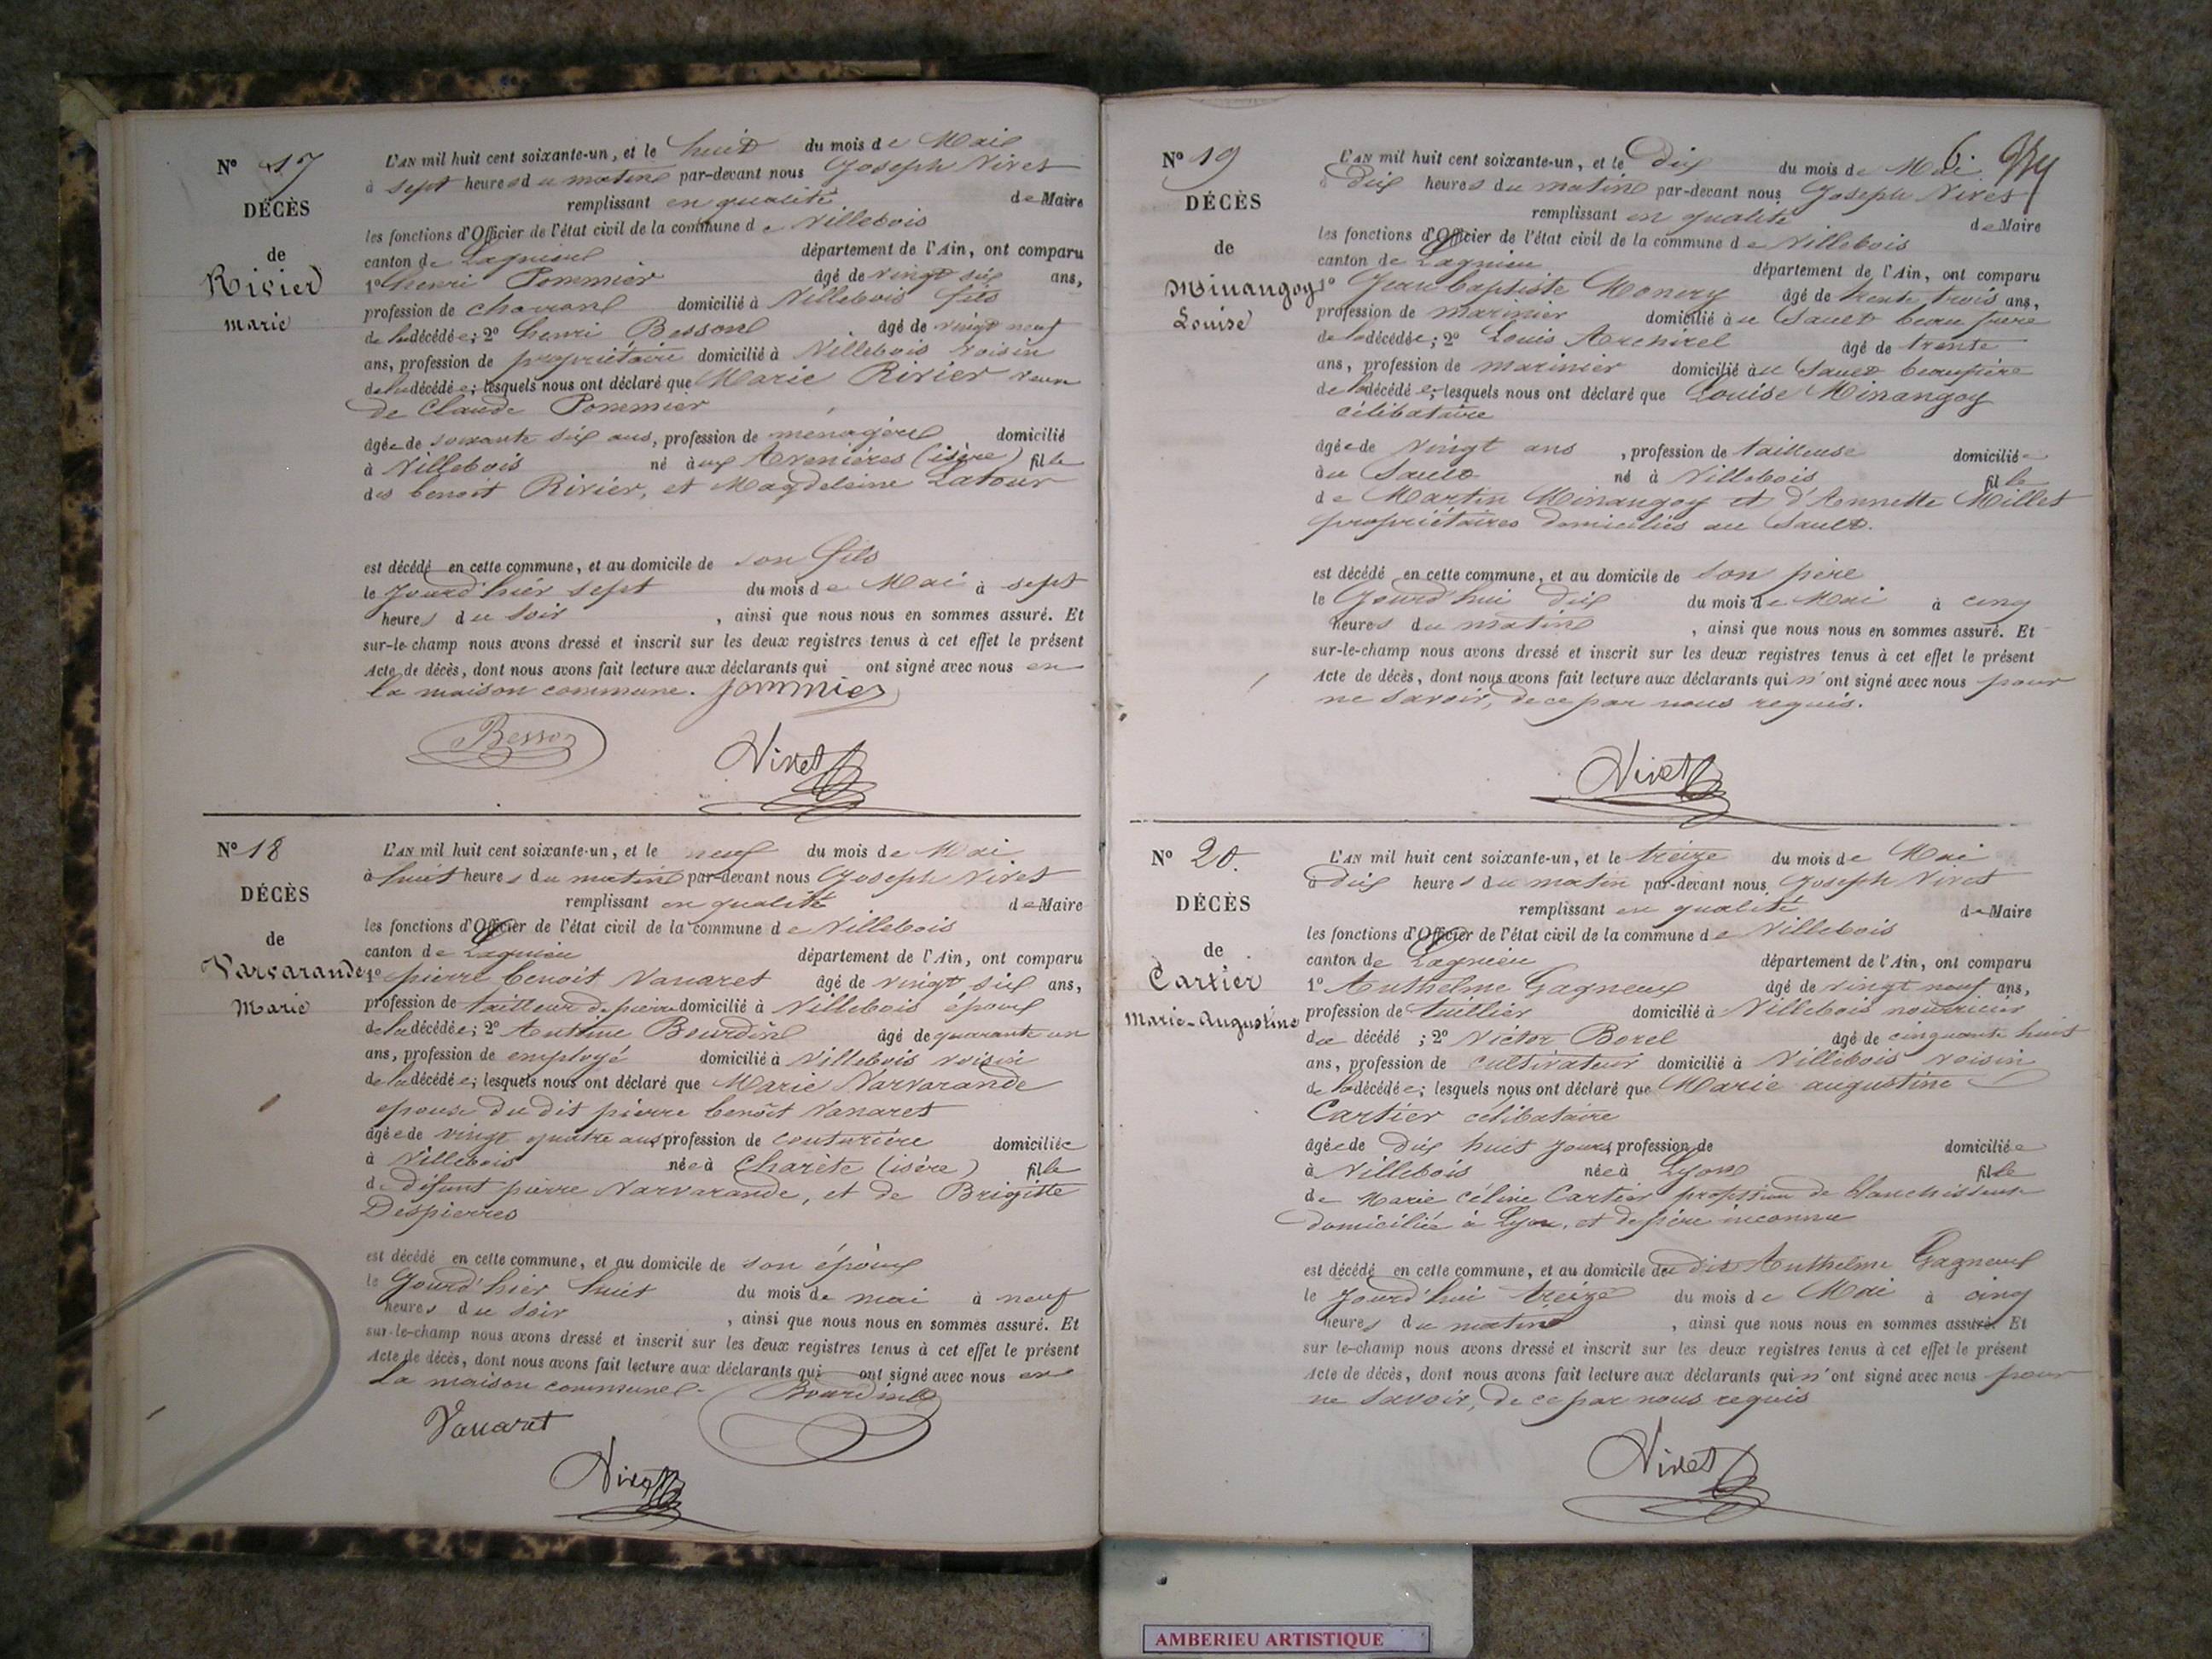 N° 17
DÉCÈS
de
Rivier
marie
L'AN mil huit cent soixante-un, et le huit du mois de Mai
à sept heures du matin par-devant nous Joseph Vivet
remplissant en qualité de Maire
les fonctions d'Officier de l'état civil de la commune de Villebois
canton de Lagnieu département de l'Ain, ont comparu
1° henri Pommier âgé de vingt six ans,
profession de charron domicilié à Villebois fils
de la décédée; 2° henri Besson âgé de vingt neuf
ans, profession de propriétaire domicilié à Villebois voisin
de la décédée; lesquels nous ont déclaré que Marie Rivier veuve
de Claude Pommier
âgée de soixante six ans, profession de menagère domicilié
à Villebois né aux Avenières (isère) fille
des benoit Rivier, et Magdeleine Latour
est décédé en cette commune, et au domicile de son fils
le Jourd'hier sept du mois de Mai à sept
heures du soir, ainsi que nous nous en sommes assuré. Et
sur-le-champ nous avons dressé et inscrit sur les deux registres tenus à cet effet le présent
Acte de décès, dont nous avons fait lecture aux déclarants qui ont signé avec nous en
la maison commune. pommier
Besson
Vivet
N° 18
DÉCÈS
de
Varvarande
Marie
L'AN mil huit cent soixante-un, et le neuf du mois de Mai
à huit heures du matin par-devant nous Joseph Vivet
remplissant en qualité de Maire
les fonctions d'Officier de l'état civil de la commune de Villebois
canton de Lagnieu département de l'Ain, ont comparu
1° pierre benoit Vanaret âgé de vingt six ans,
profession de tailleur de pierre domicilié à Villebois époux
de la décédée; 2° Bourdin âgé de quarante un
ans, profession de employé domicilié à Villebois voisin
de la décédée; lesquels nous ont déclaré que Marie Varvarande
epouse du dit pierre benoît Vanaret
âgée de vingt quatre ans profession de couturière domiciliée
à Villebois née à Charète (isère) fille
de défunt pierre Varvarande, et de Brigitte
Despierres
est décédé en cette commune, et au domicile de son époux
le Jourd'hier huit du mois de mai à neuf
heures du soir, ainsi que nous nous en sommes assuré. Et
sur-le-champ nous avons dressé et inscrit sur les deux registres tenus à cet effet le présent
Acte de décès, dont nous avons fait lecture aux déclarants qui ont signé avec nous en
la maison commune. Bourdin
Vanaret
Vivet
6.
N° 19
DÉCÈS
de
Minangoy
Louise
L'AN mil huit cent soixante-un, et le dix du mois de Mai
à dix heures du matin par-devant nous Joseph Vivet
remplissant en qualité de Maire
les fonctions d'Officier de l'état civil de la commune de Villebois
canton de Lagnieu département de l'Ain, ont comparu
1° Jean baptiste Monery âgé de trente trois ans,
profession de marinier domicilié au Sault beau frère
de la décédée; 2° Louis Archirel âgé de trente
ans, profession de marinier domicilié au Sault beaufrère
de la décédée; lesquels nous ont déclaré que Louise Minangoy
célibataire
âgée de vingt ans, profession de tailleuse domiciliée
au Sault né à Villebois fille
de Martin Minangoy et d'Annette Millet
propriétaires domiciliés au Sault.
est décédé en cette commune, et au domicile de son père
le Jourd'hui dix du mois de Mai à cinq
heures du matin, ainsi que nous nous en sommes assuré. Et
sur-le-champ nous avons dressé et inscrit sur les deux registres tenus à cet effet le présent
Acte de décès, dont nous avons fait lecture aux déclarants qui n'ont signé avec nous pour
ne savoir, de ce par nous requis.
Vivet
N° 20.
DÉCÈS
de
Cartier
Marie-Augustine
L'AN mil huit cent soixante-un, et le treize du mois de Mai
à dix heures du matin par-devant nous Joseph Vivet
remplissant en qualité de Maire
les fonctions d'Officier de l'état civil de la commune de Villebois
canton de Lagnieu département de l'Ain, ont comparu
1° Anthelme Gagneux âgé de vingt neuf ans,
profession de tuillier domicilié à Villebois nourricier
du décédé; 2° Victor Borel âgé de cinquante huit
ans, profession de cultivateur domicilié à Villebois voisin
de la décédée; lesquels nous ont déclaré que Marie augustine
Cartier célibataire
âgée de dix huit jours, profession de domiciliée
à Villebois née à Lyon fille
de Marie céline Cartier profession de blanchisseuse
domiciliée à Lyon, et de père inconnu
est décédé en cette commune, et au domicile du dit Anthelme Gagneux
le Jourd'hui treize du mois de Mai à cinq
heures du matin, ainsi que nous nous en sommes assuré. Et
sur le-champ nous avons dressé et inscrit sur les deux registres tenus à cet effet le présent
Acte de décès, dont nous avons fait lecture aux déclarants qui n'ont signé avec nous pour
ne savoir, de ce par nous requis
Vivet
AMBERIEU ARTISTIQUE